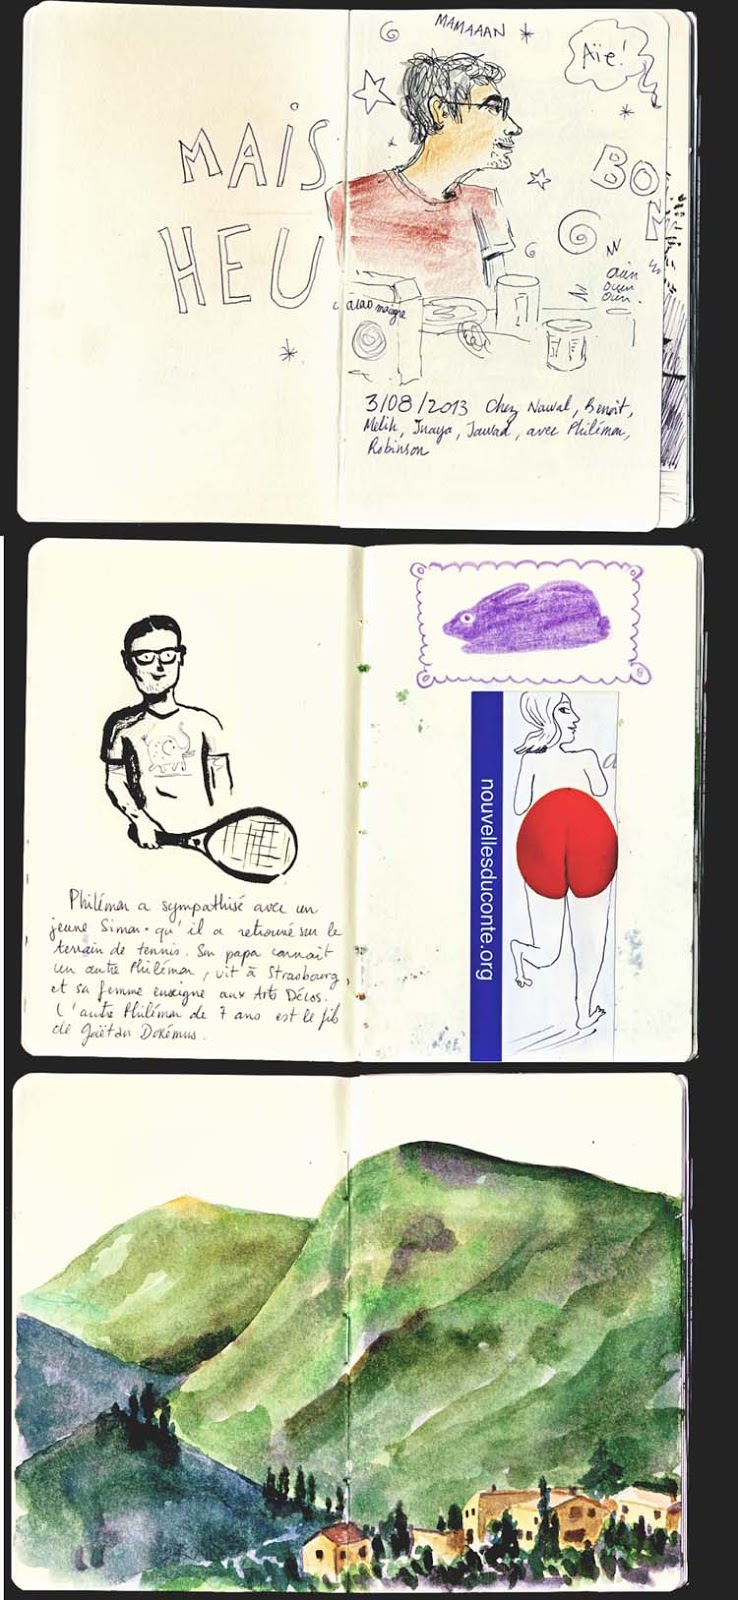 MAIS
HEU
MAMAAAN
Aïe!
BON
ouin
ouin
ouin.
cacao maigre
3/08/2013 Chez Nawal, Benoit,
Melih, Inaya, Jawad, avec Philémon,
Robinson
Philémon a sympathisé avec un
jeune Simon qu'il a retrouvé sur le
terrain de tennis. Son papa connait
un autre Philémon, vit à Strasbourg,
et sa femme enseigne aux Arts Décos.
L'autre Philémon de 7 ans est le fils
de Gaëtan Dorémus.
nouvellesduconte.org